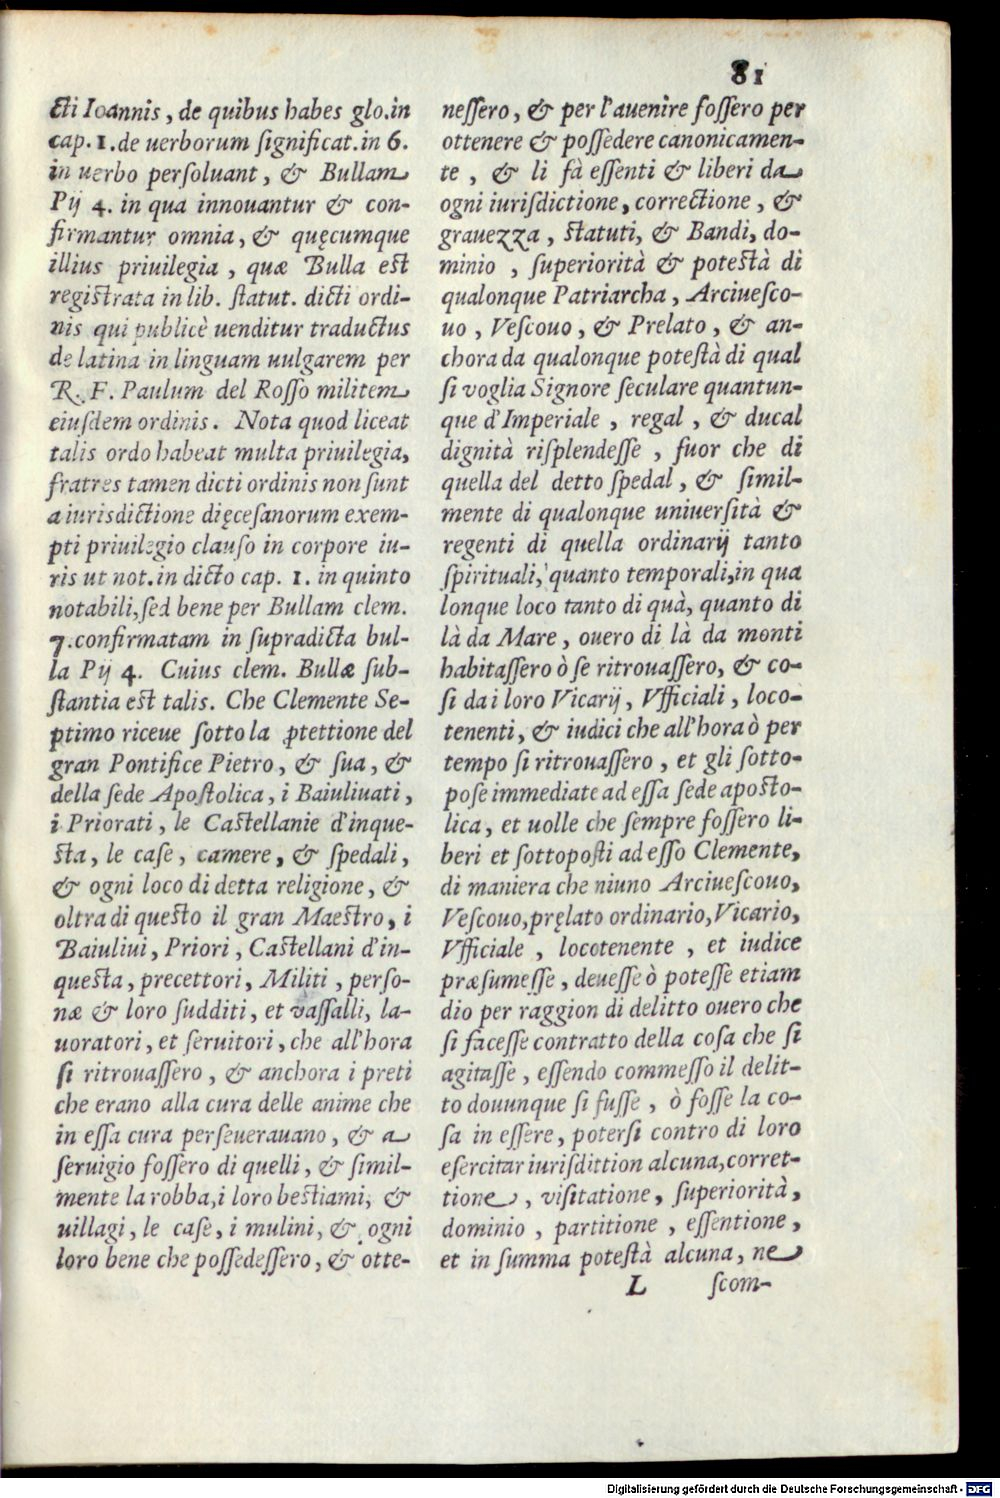 81
cti Ioannis, de quibus habes glo. in
cap. 1. de uerborum ſignificat. in 6.
in uerbo perſoluant, & Bullam
Pij 4. in qua innouantur & con-
firmantur omnia, & quęcumque
illius priuilegia, quæ Bulla eſt
regiſtrata in lib. ſtatut. dicti ordi-
nis qui publicè uenditur traductus
de latina in linguam uulgarem per
R. F. Paulum del Roſſo militem
eiuſdem ordinis. Nota quod liceat
talis ordo habeat multa priuilegia,
fratres tamen dicti ordinis non ſunt
a iurisdictione dięceſanorum exem-
pti priuilegio clauſo in corpore iu-
ris ut not. in dicto cap. 1. in quinto
notabili, ſed bene per Bullam clem.
7. confirmatam in ſupradicta bul-
la Pij 4. Cuius clem. Bullæ ſub-
ſtantia eſt talis. Che Clemente Se-
ptimo riceue ſotto la ꝓtettione del
gran Pontifice Pietro, & ſua, &
della ſede Apoſtolica, i Baiuliuati,
i Priorati, le Caſtellanie d'inque-
ſta, le caſe, camere, & ſpedali,
& ogni loco di detta religione, &
oltra di queſto il gran Maeſtro, i
Baiuliui, Priori, Caſtellani d'in-
queſta, precettori, Militi, perſo-
næ & loro ſudditi, et vaſſalli, la-
uoratori, et ſeruitori, che all'hora
ſi ritrouaſſero, & anchora i preti
che erano alla cura delle anime che
in eſſa cura perſeuerauano, & a
ſeruigio foſſero di quelli, & ſimil-
mente la robba, i loro beſtiami, &
uillagi, le caſe, i mulini, & ogni
loro bene che poſſedeſſero, & otte-
neſſero, & per l'auenire foſſero per
ottenere & poſſedere canonicamen-
te, & li fà eſſenti & liberi da
ogni iurisdictione, correctione, &
grauezza, ſtatuti, & Bandi, do-
minio, ſuperiorità & poteſtà di
qualonque Patriarcha, Arciueſco-
uo, Veſcouo, & Prelato, & an-
chora da qualonque poteſtà di qual
ſi voglia Signore ſeculare quantun-
que d'Imperiale, regal, & ducal
dignità riſplendeſſe, fuor che di
quella del detto ſpedal, & ſimil-
mente di qualonque uniuerſità &
regenti di quella ordinarij tanto
ſpirituali, quanto temporali, in qua
lonque loco tanto di quà, quanto di
là da Mare, ouero di là da monti
habitaſſero ò ſe ritrouaſſero, & co-
ſi da i loro Vicarij, Vfficiali, loco-
tenenti, & iudici che all'hora ò per
tempo ſi ritrouaſſero, et gli ſotto-
poſe immediate ad eſſa ſede apoſto-
lica, et uolle che ſempre foſſero li-
beri et ſottopoſti ad eſſo Clemente,
di maniera che niuno Arciueſcouo,
Veſcouo, pręlato ordinario, Vicario,
Vfficiale, locotenente, et iudice
præſumeſſe, deueſſe ò poteſſe etiam
dio per raggion di delitto ouero che
ſi faceſſe contratto della coſa che ſi
agitaſſe, eſſendo commeſſo il delit-
to douunque ſi fuſſe, ò foſſe la co-
ſa in eſſere, poterſi contro di loro
eſercitar iurisdittion alcuna, corret-
tione, viſitatione, ſuperiorità,
dominio, partitione, eſſentione,
et in ſumma poteſtà alcuna, ne
L ſcom-
Digitalisierung gefördert durch die Deutsche Forschungsgemeinschaft - DFG